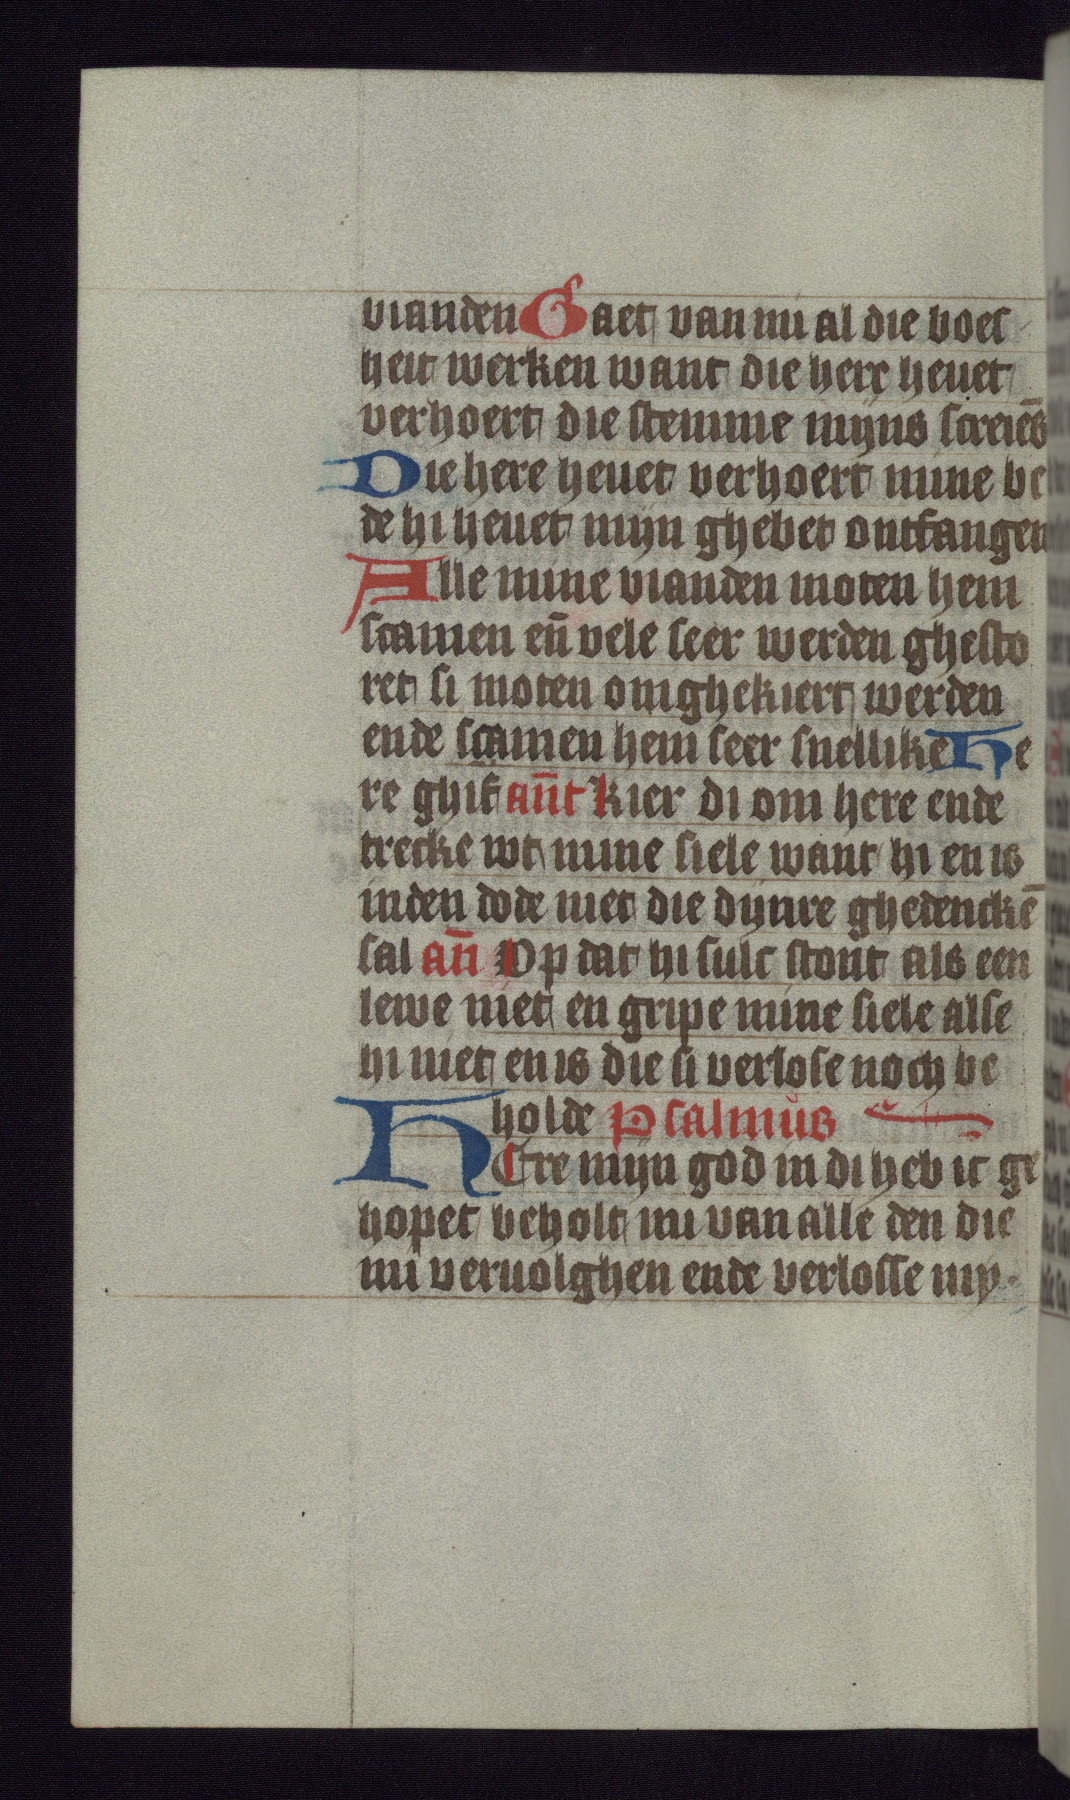 vianden Gaet van mi al die boes
heit werken want die here heuet
verhoert die stemme mijns screiēs
Die here heuet verhoert mine be
de hi heuet mijn ghebet ontfangen
Alle mine vianden moten hem
scamen eñ vele seer werden ghesto
ret si moten omghekiert werden
ende scamen hem seer snellike He
re ghif añt Kier di om here ende
trecke wt mine siele want hi en is
inden dode niet die dijnre ghedenckē
sal añ Op dat hi sulc stont als een
lewe niet en gripe mine siele alse
hi niet en is die si verlose noch be
holde Psalmus
HEre mijn god in di heb ic ge
hopet beholt mi van alle den die
mi veruolghen ende verlosse my